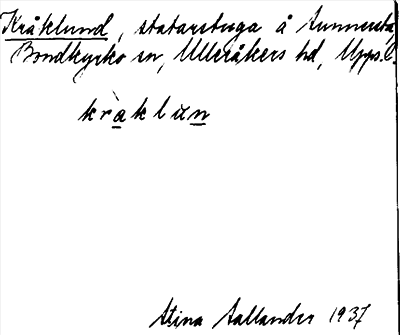 Kråklund, statarstuga å Sunnersta,
Bondkyrko sn, Ulleråkers hd, Upps. l.
kràklun
Stina Aallander 1937